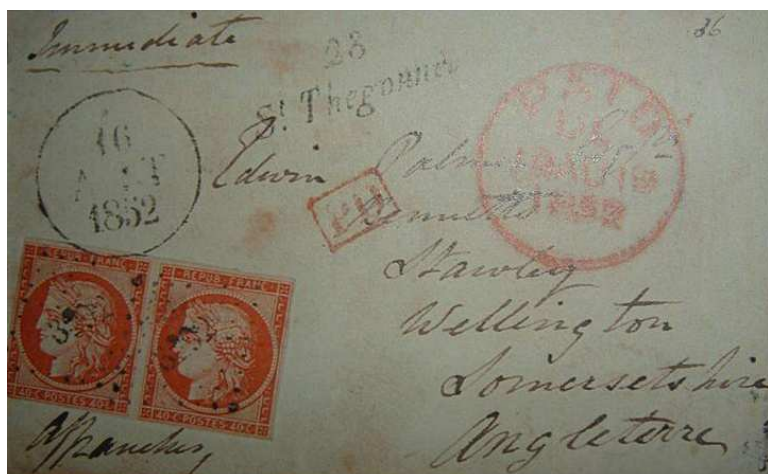 Immediate
36
28
St. Thegonnec
16
AOUT
1852
PAID
19 AU 19
1852
Edwin Palmer Esqre
PD
Stawley
Wellington
Somersetshire
Angleterre
REPUB. FRANC.
40 C. POSTES 40 C.
REPUB. FRANC.
40 C. POSTES 40 C.
Affranchie